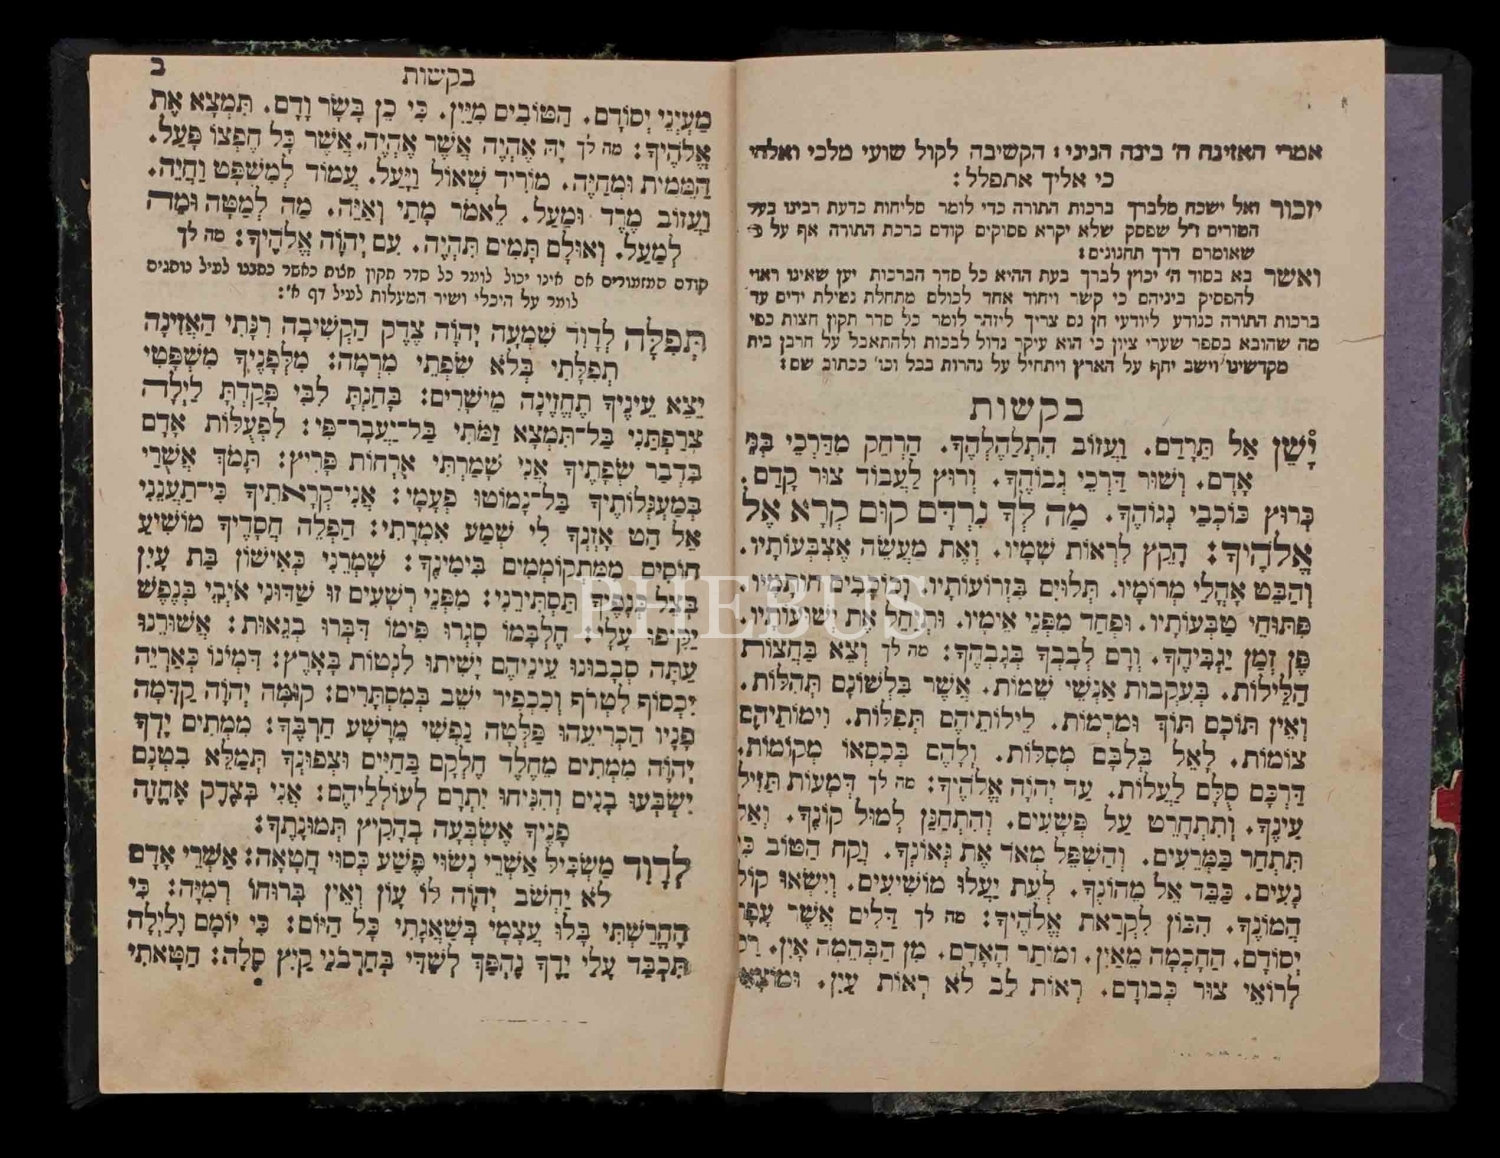 אמרי האזינה ה׳ בינה הגיגי : הקשיבה לקול שועי מלכי ואלהי
כי אליך אתפלל :
יזכור ואל ישכח מלברך ברכות התורה כדי לומר סליחות כדעת רבינו בעל
הטורים ז״ל שפסק שלא יקרא פסוקים קודם ברכת התורה אף על פ
שאומרם דרך תחנונים :
ואשר בא בסוד ה׳ יכוין לברך בעת ההיא כל סדר הברכות יען שאינו ראוי
להפסיק ביניהם כי קשר ויחוד אחד לכולם מתחלת נטילת ידים עד
ברכות התורה כנודע ליודעי חן גם צריך ליזהר לומר כל סדר תקון חצות כפי
מה שהובא בספר שערי ציון כי הוא עיקר גדול לבכות ולהתאבל על חרבן בית
מקדשינו וישב יחף על הארץ ויתחיל על נהרות בבל וכו׳ ככתוב שם :
בקשות
יָשֵׁן אַל תֵּרָדַם. וַעֲזוֹב הִתְלַהְלְהֶךָ. הַרְחֵק מִדַּרְכֵי בְּנֵי
אָדָם. וְשׁוּר דַּרְכֵי גְבוֹהֶךָ. וְרוּץ לַעֲבוֹד צוּר קֶדֶם.
כְּרוּץ כּוֹכְבֵי נָגְהֶךָ. מַה לְּךָ נִרְדָּם קוּם קְרָא אֶל
אֱלֹהֶיךָ : הָקֵץ לִרְאוֹת שָׁמָיו. וְאֶת מַעֲשֵׂה אֶצְבְּעוֹתָיו.
וְהַבֵּט אָהֳלֵי מְרוֹמָיו. תְּלוּיִם בִּזְרוֹעוֹתָיו. וְכוֹכָבִים חוֹתָמָיו.
פִּתּוּחֵי טַבְּעוֹתָיו. וּפְחַד מִפְּנֵי אֵימָיו. וּתְיַחֵל אֶת יְשׁוּעוֹתָיו.
פֶּן זְמַן יַגְבִּיהֶךָ. וְרָם לְבָבְךָ בְּגָבְהֶךָ : מה לך וְצֵא בַּחֲצוֹת
הַלֵּילוֹת. בְּעִקְבוֹת אַנְשֵׁי שֵׁמוֹת. אֲשֶׁר בִּלְשׁוֹנָם תְּהִלּוֹת.
וְאֵין תּוֹכָם תּוֹךְ וּמִרְמוֹת. לֵילוֹתֵיהֶם תְּפִלּוֹת. וִימוֹתֵיהֶם
צוֹמוֹת. לָאֵל בְּלִבָּם מְסִלּוֹת. וְלָהֶם בְּכִסְאוֹ מְקוֹמוֹת.
דַּרְכָּם סֻלָּם לַעֲלוֹת. עַד יְהֹוָה אֱלֹהֶיךָ : מה לך דְּמָעוֹת תַּזִּיל
עֵינֶךָ. וְתִתְחָרֵט עַל פְּשָׁעִים. וְהִתְחַנֵּן לְמוּל קוֹנֶךָ. וְאַל
תִּתְחַר בַּמְּרֵעִים. וְהַשְׁפֵּל מְאֹד אֶת גְּאוֹנֶךָ. וְקַח הַטּוֹב כִּי
נָעִים. כַּבֵּד אֵל מֵהוֹנֶךָ. לְעֵת יַעֲלוּ מוֹשִׁיעִים. וְיִשְׂאוּ קוֹל
הֲמוֹנֶךָ. הִכּוֹן לִקְרַאת אֱלֹהֶיךָ : מה לך דַּלִּים אֲשֶׁר עָפָר
יְסוֹדָם. הַחָכְמָה מֵאַיִן. וּמוֹתַר הָאָדָם. מִן הַבְּהֵמָה אָיִן. רַק
לְרוֹאֵי צוּר כְּבוֹדָם. רְאוֹת לֵב לֹא רְאוֹת עָיִן. וּמוֹצְאֵי
בקשות
ב
מַעְיְנֵי יְסוֹדָם. הַטּוֹבִים מִיָּיִן. כִּי כֵן בָּשָׂר וָדָם. תִּמְצָא אֶת
אֱלֹהֶיךָ : מה לך יָהּ אֶהְיֶה אֲשֶׁר אֶהְיֶה. אֲשֶׁר כָּל חֶפְצוֹ פָּעַל.
הַמֵּמִית וּמְחַיֶּה. מוֹרִיד שְׁאוֹל וַיָּעַל. עֲמוֹד לְמִשְׁפָּט וַחֲיֵה.
וַעֲזוֹב מֶרֶד וּמַעַל. לֵאמֹר מָתַי וְאַיֵּה. מַה לְמַטָּה וּמַה
לְמָעַל. וְאוּלָם תָּמִים תִּהְיֶה. עִם יְהֹוָה אֱלֹהֶיךָ : מה לך
קודם המזמורים אם אינו יכול לומר כל סדר תקון חצות כאשר כתבנו לעיל נוהגים
לומר על היכלי ושיר המעלות לעיל דף א׳ :
תְּפִלָּה לְדָוִד שִׁמְעָה יְהֹוָה צֶדֶק הַקְשִׁיבָה רִנָּתִי הַאֲזִינָה
תְפִלָּתִי בְּלֹא שִׂפְתֵי מִרְמָה : מִלְּפָנֶיךָ מִשְׁפָּטִי
יֵצֵא עֵינֶיךָ תֶּחֱזֶינָה מֵישָׁרִים : בָּחַנְתָּ לִבִּי פָּקַדְתָּ לַּיְלָה
צְרַפְתַּנִי בַל־תִּמְצָא זַמֹּתִי בַּל־יַעֲבָר־פִּי : לִפְעֻלּוֹת אָדָם
בִּדְבַר שְׂפָתֶיךָ אֲנִי שָׁמַרְתִּי אָרְחוֹת פָּרִיץ : תָּמֹךְ אֲשֻׁרַי
בְּמַעְגְּלוֹתֶיךָ בַּל־נָמוֹטּוּ פְעָמָי : אֲנִי־קְרָאתִיךָ כִּי־תַעֲנֵנִי
אֵל הַט אָזְנְךָ לִי שְׁמַע אִמְרָתִי : הַפְלֵה חֲסָדֶיךָ מוֹשִׁיעַ
חוֹסִים מִמִּתְקוֹמְמִים בִּימִינֶךָ : שָׁמְרֵנִי כְּאִישׁוֹן בַּת עָיִן
בְּצֵל כְּנָפֶיךָ תַּסְתִּירֵנִי : מִפְּנֵי רְשָׁעִים זוּ שַׁדּוּנִי אֹיְבַי בְּנֶפֶשׁ
יַקִּיפוּ עָלָי : חֶלְבָּמוֹ סָּגְרוּ פִּימוֹ דִּבְּרוּ בְגֵאוּת : אַשֻּׁרֵנוּ
עַתָּה סְבָבוּנוּ עֵינֵיהֶם יָשִׁיתוּ לִנְטוֹת בָּאָרֶץ : דִּמְיֹנוֹ כְּאַרְיֵה
יִכְסוֹף לִטְרוֹף וְכִכְפִיר יֹשֵׁב בְּמִסְתָּרִים : קוּמָה יְהֹוָה קַדְּמָה
פָנָיו הַכְרִיעֵהוּ פַּלְּטָה נַפְשִׁי מֵרָשָׁע חַרְבֶּךָ : מִמְתִים יָדְךָ
יְהֹוָה מִמְתִים מֵחֶלֶד חֶלְקָם בַּחַיִּים וּצְפוּנְךָ תְּמַלֵּא בִטְנָם
יִשְׂבְּעוּ בָנִים וְהִנִּיחוּ יִתְרָם לְעוֹלְלֵיהֶם : אֲנִי בְּצֶדֶק אֶחֱזֶה
פָנֶיךָ אֶשְׂבְּעָה בְהָקִיץ תְּמוּנָתֶךָ :
לְדָוִד מַשְׂכִּיל אַשְׁרֵי נְשׂוּי פֶּשַׁע כְּסוּי חֲטָאָה : אַשְׁרֵי אָדָם
לֹא יַחְשֹׁב יְהֹוָה לוֹ עָוֹן וְאֵין בְּרוּחוֹ רְמִיָּה : כִּי
הֶחֱרַשְׁתִּי בָּלוּ עֲצָמָי בְּשַׁאֲגָתִי כָּל הַיּוֹם : כִּי יוֹמָם וָלַיְלָה
תִּכְבַּד עָלַי יָדֶךָ נֶהְפַּךְ לְשַׁדִּי בְּחַרְבֹנֵי קַיִץ סֶלָה : חַטָּאתִי
PHEBUS